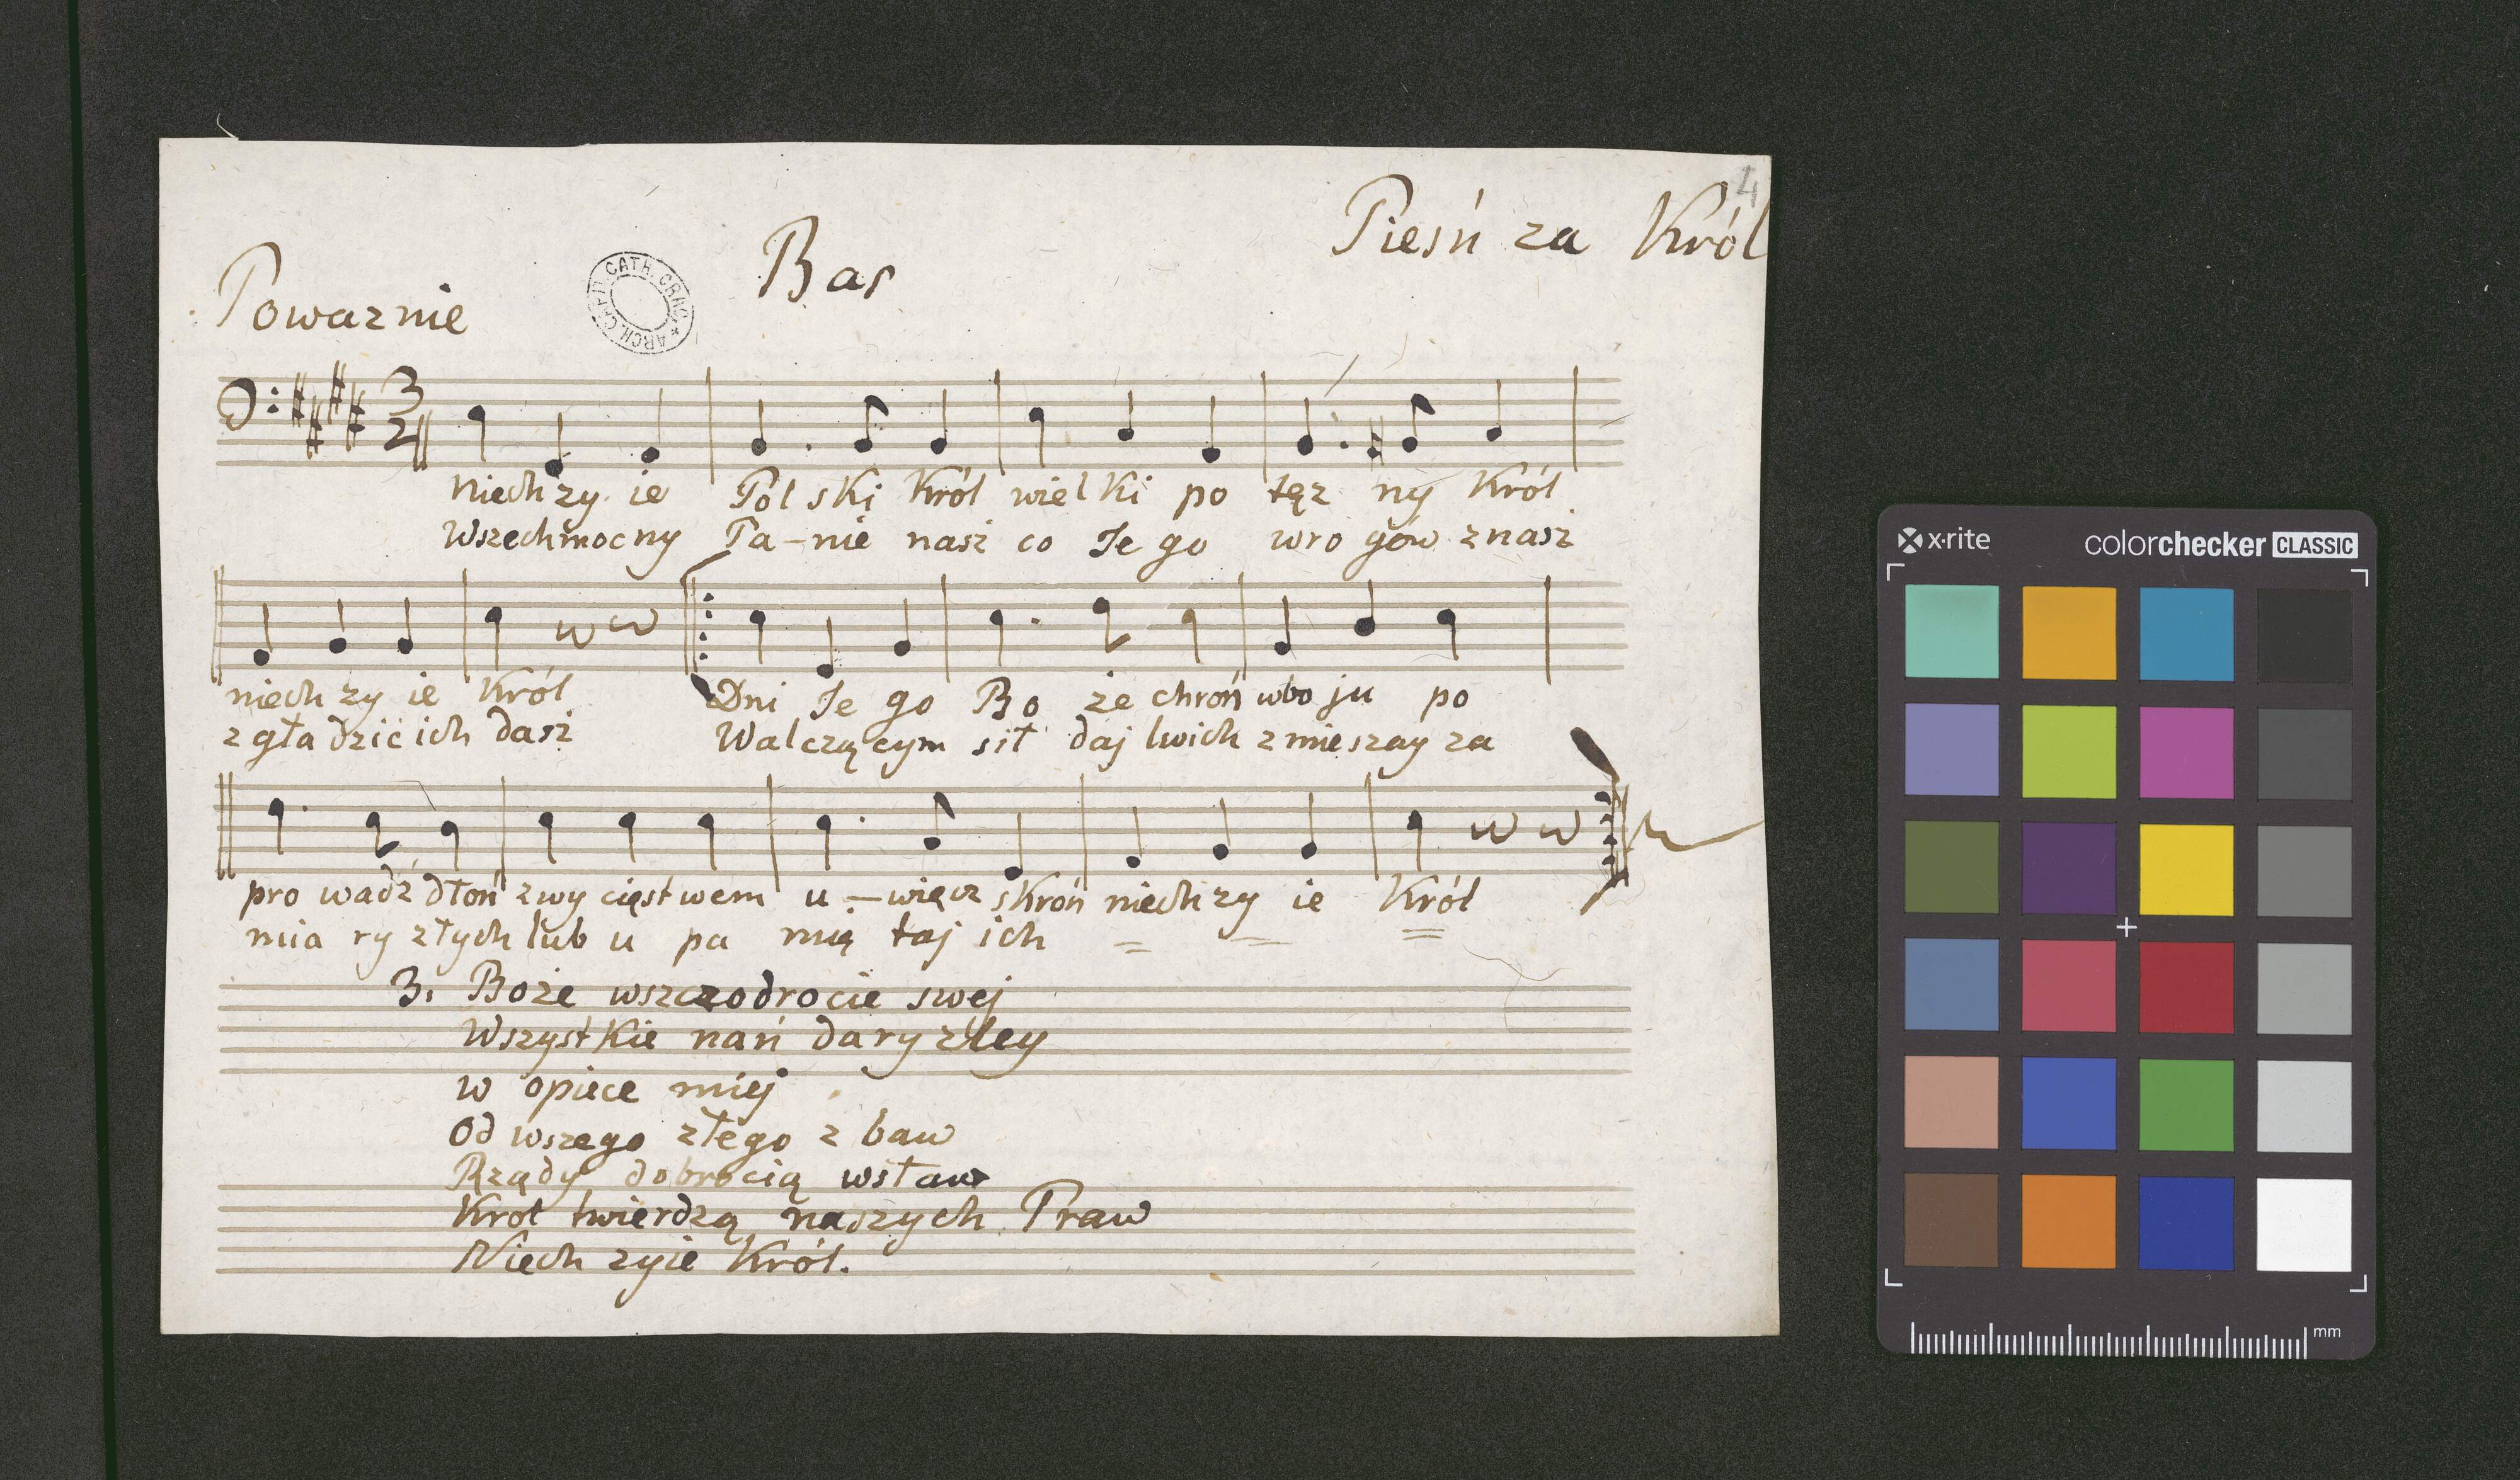 4
Pieśń za Król
Bas
Powaznie
ARCH. CAPIT. CATH. CRAC. *
3
2
Niech zy ie Pol ski Król wiel ki po tęz ny Król
Wszechmocny Pa–nie nasz co Je go wro gów znasz
niech zy ie Król Dni Je go Bo że chroń wbo ju po
zgła dzić ich dasz Walczącym sił daj lwich zmieszay za
pro wadź dłoń zwy cięst wem u – więcz skroń niech zy ie Król
mia ry złych lub u pa mię taj ich = = =
3. Boże wszczodrocie swej
Wszystkie nań dary zley
w opiece miej
Od wszego złego z baw
Rządy dobrocią wsław
Krol twierdzą naszych Praw
Niech zyie Król.
x·rite colorchecker CLASSIC
mm